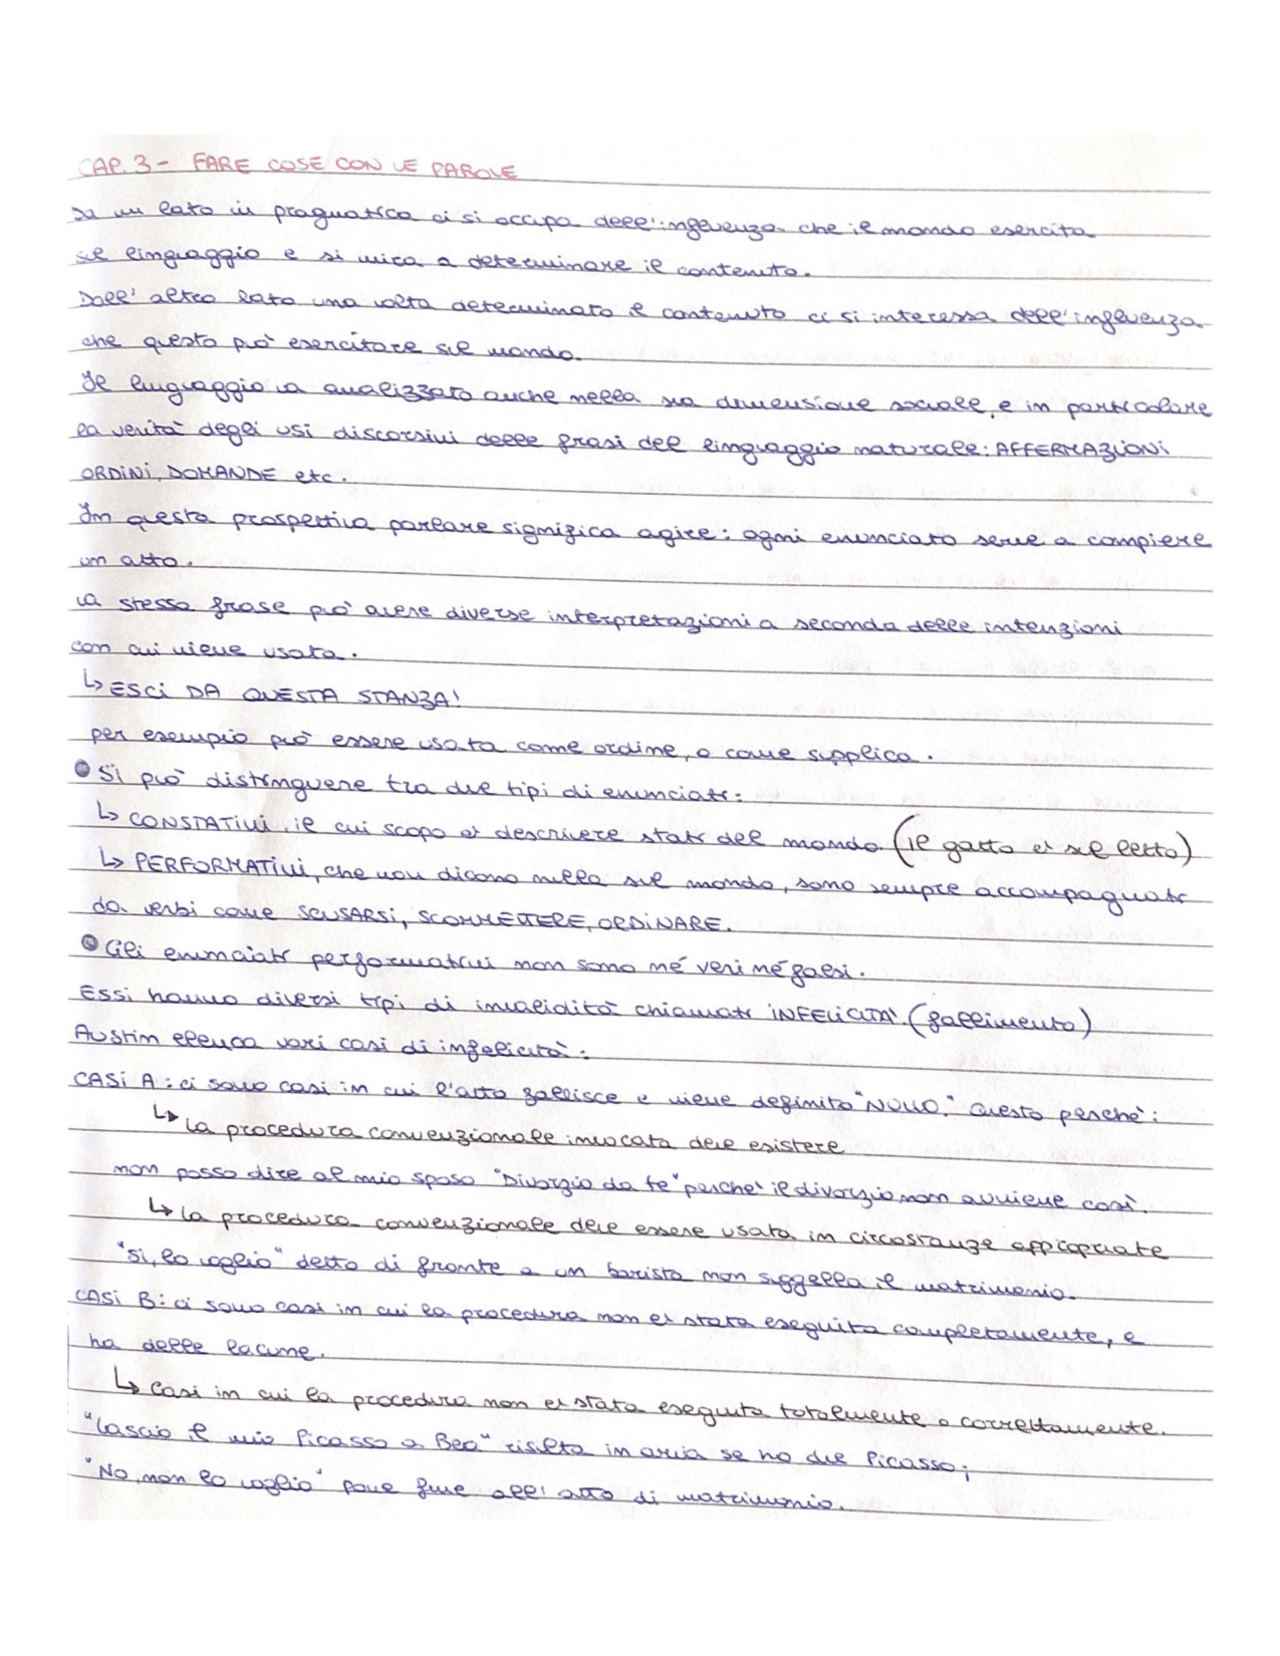 CAP. 3 - FARE COSE CON LE PAROLE
Da un lato in pragmatica ci si occupa dell'influenza che il mondo esercita
sul linguaggio e si mira a determinare il contenuto.
Dall'altro lato una volta determinato il contenuto ci si interessa dell'influenza
che questo può esercitare sul mondo.
Il linguaggio va analizzato anche nella sua dimensione sociale, e in particolare
la verità degli usi discorsivi delle frasi del linguaggio naturale: AFFERMAZIONI
ORDINI, DOMANDE etc.
In questa prospettiva parlare significa agire: ogni enunciato serve a compiere
un atto.
La stessa frase può avere diverse interpretazioni a seconda delle intenzioni
con cui viene usata.
↳ ESCI DA QUESTA STANZA!
per esempio può essere usata come ordine, o come supplica.
● Si può distinguere tra due tipi di enunciati:
↳ CONSTATIVI, il cui scopo è descrivere stati del mondo (il gatto è sul letto)
↳ PERFORMATIVI, che non dicono nulla sul mondo, sono sempre accompagnati
da verbi come SCUSARSI, SCOMMETTERE, ORDINARE.
● Gli enunciati performativi non sono né veri né falsi.
Essi hanno diversi tipi di invalidità chiamati INFELICITA'. (fallimento)
Austin elenca vari casi di infelicità:
CASI A: ci sono casi in cui l'atto fallisce e viene definito "NULLO." Questo perché:
↳ La procedura convenzionale invocata deve esistere
non posso dire al mio sposo "Divorzio da te" perché il divorzio non avviene così.
↳ La procedura convenzionale deve essere usata in circostanze appropriate
"Si, lo voglio" detto di fronte a un barista non suggella il matrimonio.
CASI B: ci sono casi in cui la procedura non è stata eseguita completamente, e
ha delle lacune.
↳ Casi in cui la procedura non è stata eseguita totalmente o correttamente.
"Lascio il mio Picasso a Bea" risulta in aria se ho due Picasso;
"No, non lo voglio" pone fine all'atto di matrimonio.